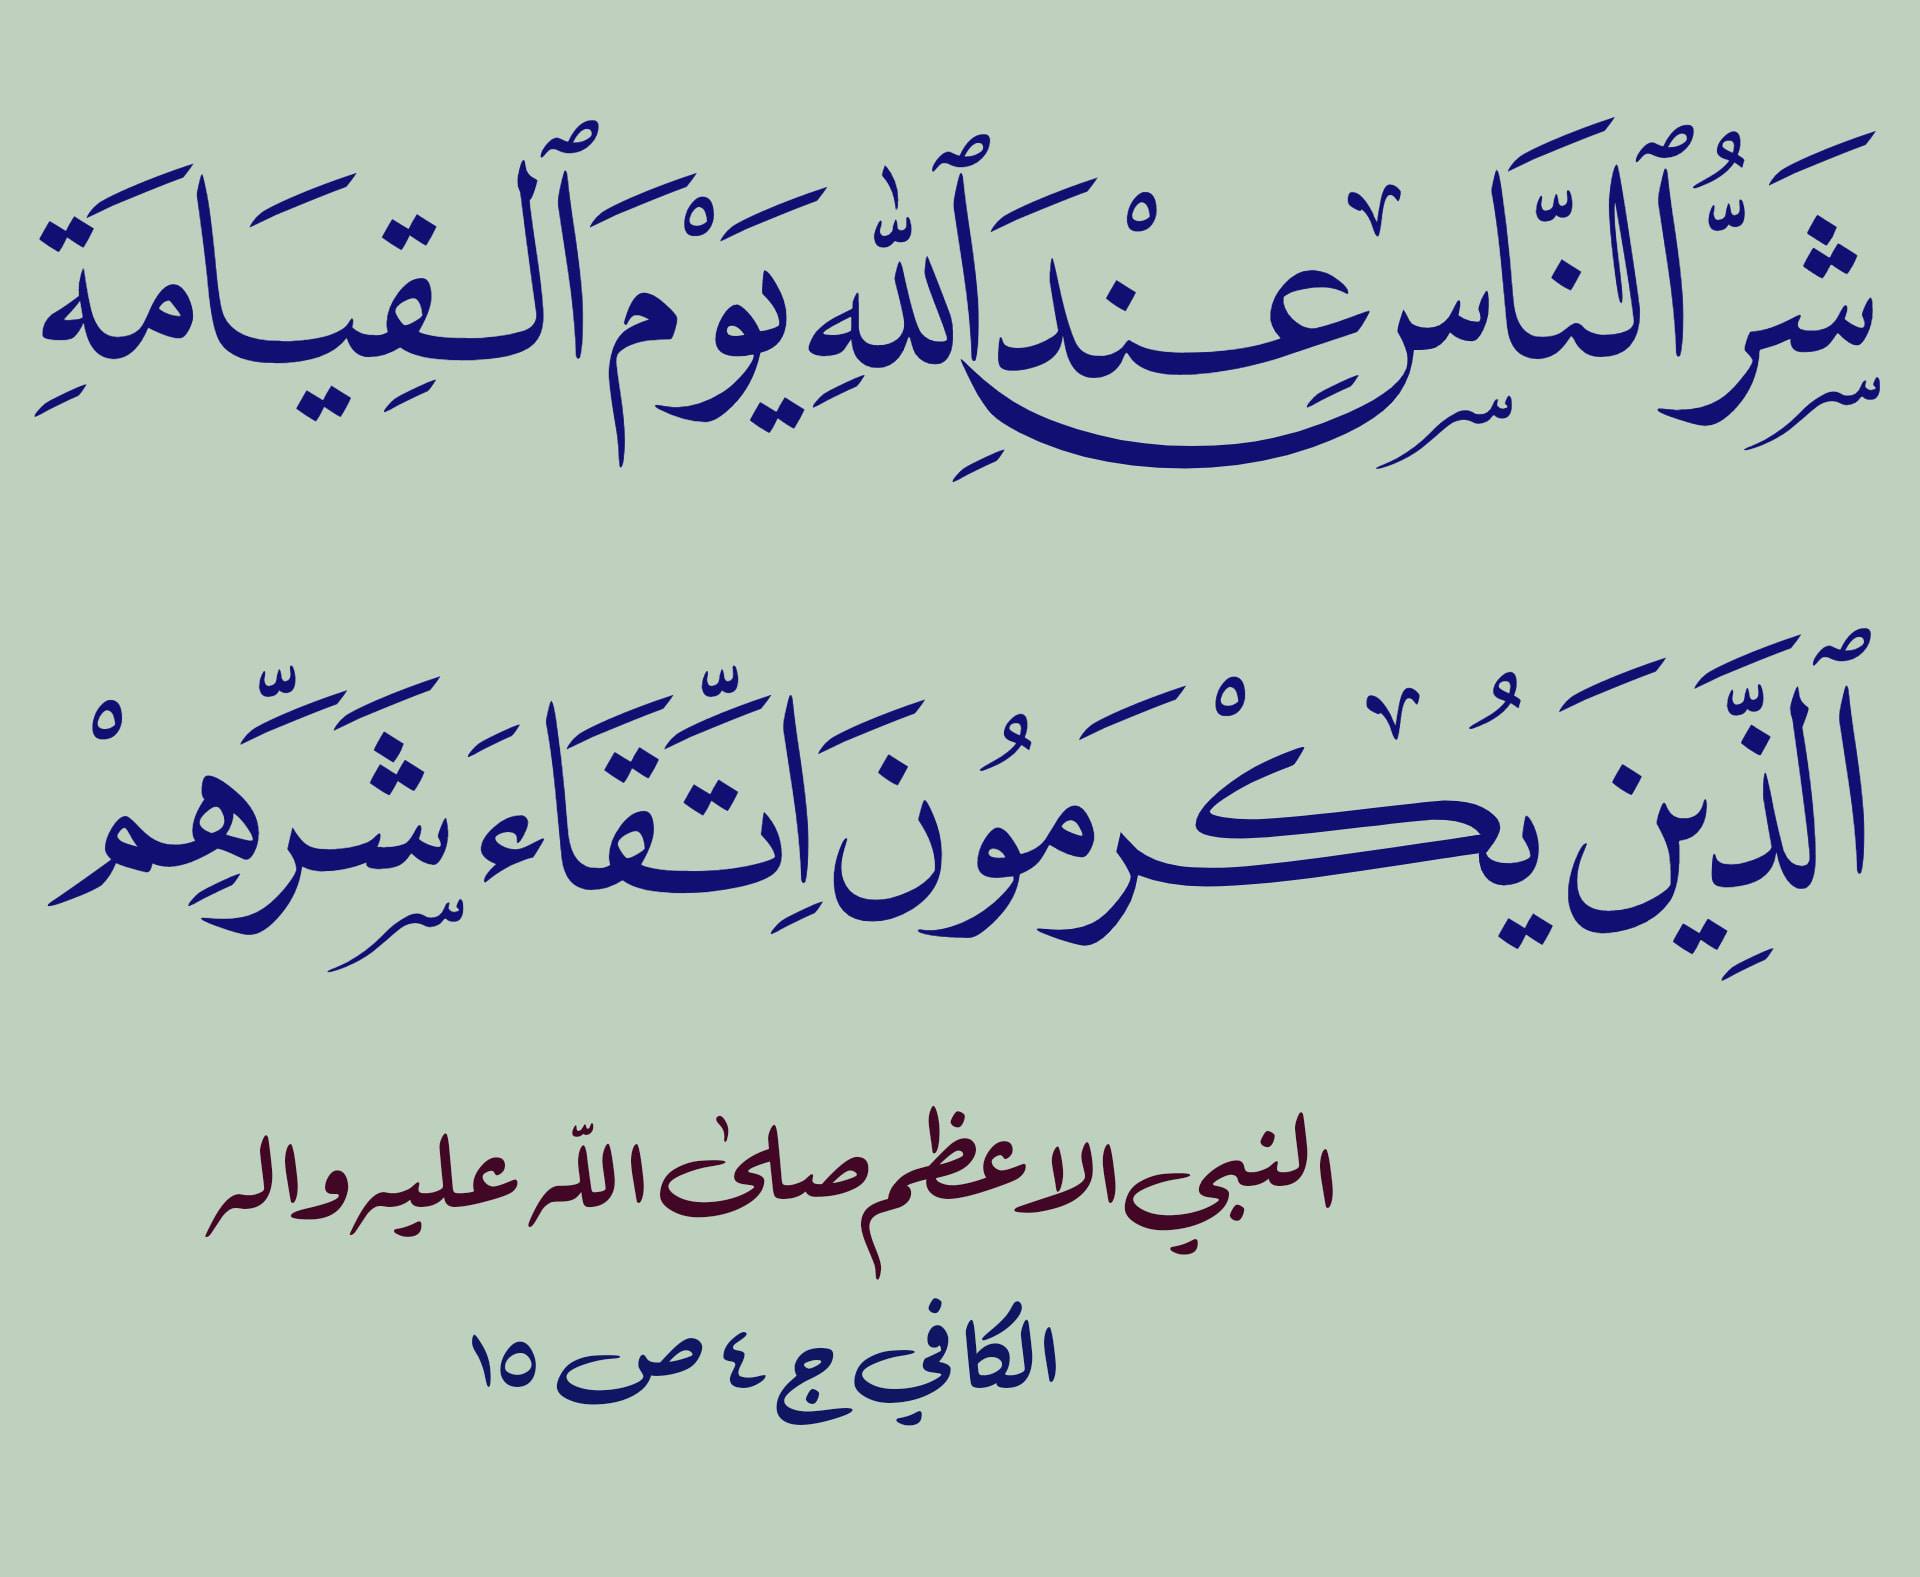 شَرُّ ٱلنَّاسِ عِنْدَ ٱللّٰهِ يَوْمَ ٱلْقِيَامَةِ
ٱلَّذِينَ يُكْرَمُونَ اِتِّقَاءَ شَرِّهِمْ
النبي الاعظم صلىٰ اللّه عليه واله
الكافي ج ٤ ص ١٥